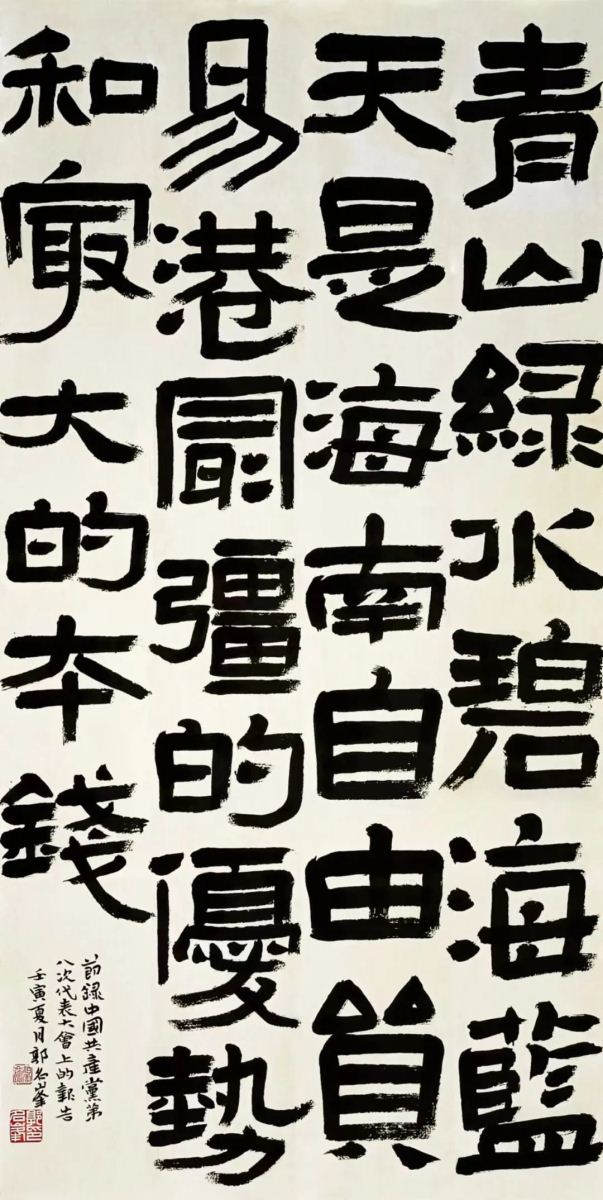 青山綠水碧海藍
天是海南自由貿
易港最彊的優勢
和冣大的本錢
節錄中國共產黨第
八次代表大會上的報告
壬寅夏月郭名峯